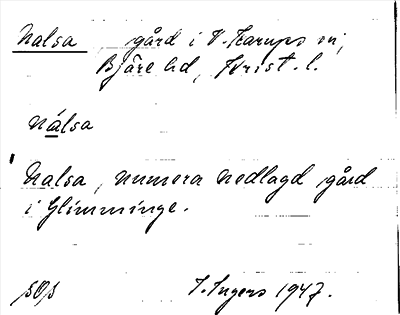 Nalsa gård i V. Karups sn;
Bjäre hd, Krist. l.
nálsa
Nalsa, numera nedlagd gård
i Glimminge.
I. Ingers 1947.